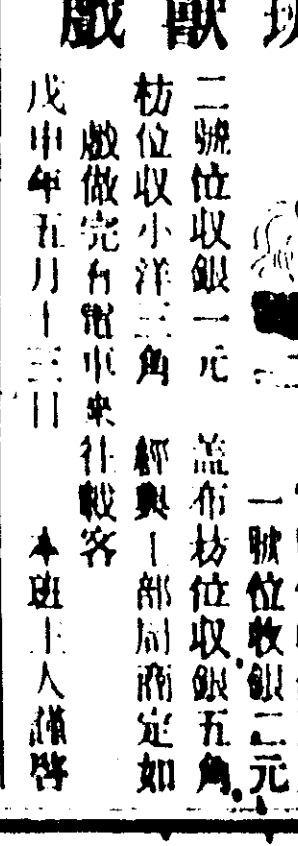 獸戲
一號位收銀二元
二號位收銀一元 蓋布枋位收銀五角
枋位收小洋三角 經與工部局商定如
戲做完有電車來往載客
戊申年五月十三日 本班主人謹啓